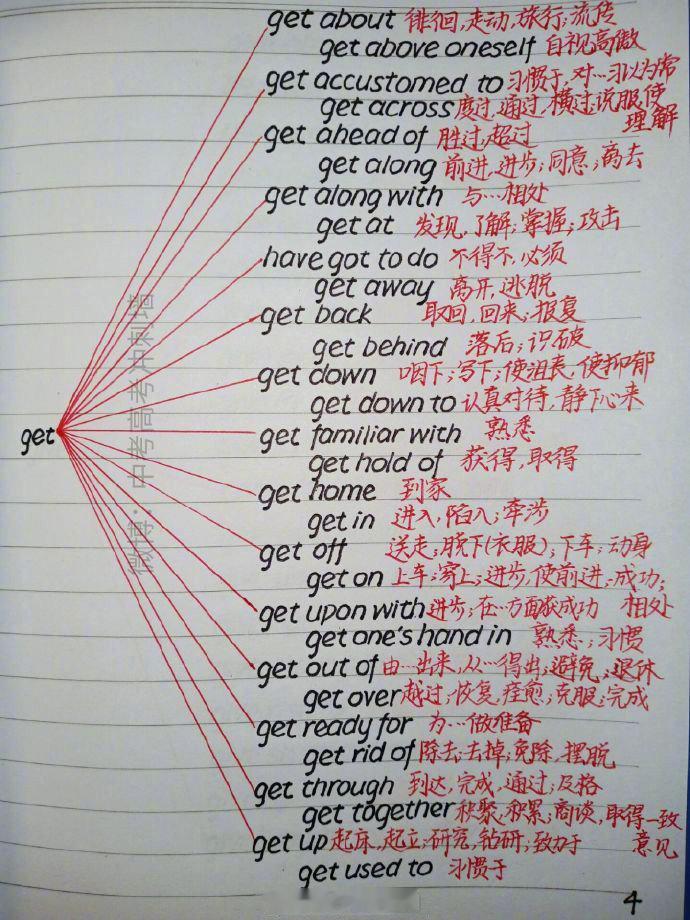 get about 徘徊,走动,旅行;流传
get above oneself 自视高傲
get accustomed to 习惯于,对…习以为常
get across 度过,通过,横过;说服,使理解
get ahead of 胜过,超过
get along 前进,进步;同意;离去
get along with 与…相处
get at 发现,了解;掌握;攻击
have got to do 不得不,必须
get away 离开,逃脱
get back 取回,回来;报复
get behind 落后;识破
get down 咽下;写下;使沮丧,使抑郁
get down to 认真对待,静下心来
get
get familiar with 熟悉
get hold of 获得,取得
get home 到家
get in 进入,陷入;牵涉
get off 送走;脱下(衣服);下车;动身
get on 上车;穿上;进步,使前进;成功;相处
get upon with 进步;在…方面获成功
get one's hand in 熟悉;习惯
get out of 由…出来,从…得出;避免;退休
get over 越过;恢复,痊愈;克服;完成
get ready for 为…做准备
get rid of 除去,去掉,免除,摆脱
get through 到达,完成,通过;及格
get together 积聚,积累;商谈,取得一致意见
get up 起床,起立;研究,钻研;致力于
get used to 习惯于
4
微博:中考高考冲刺墙